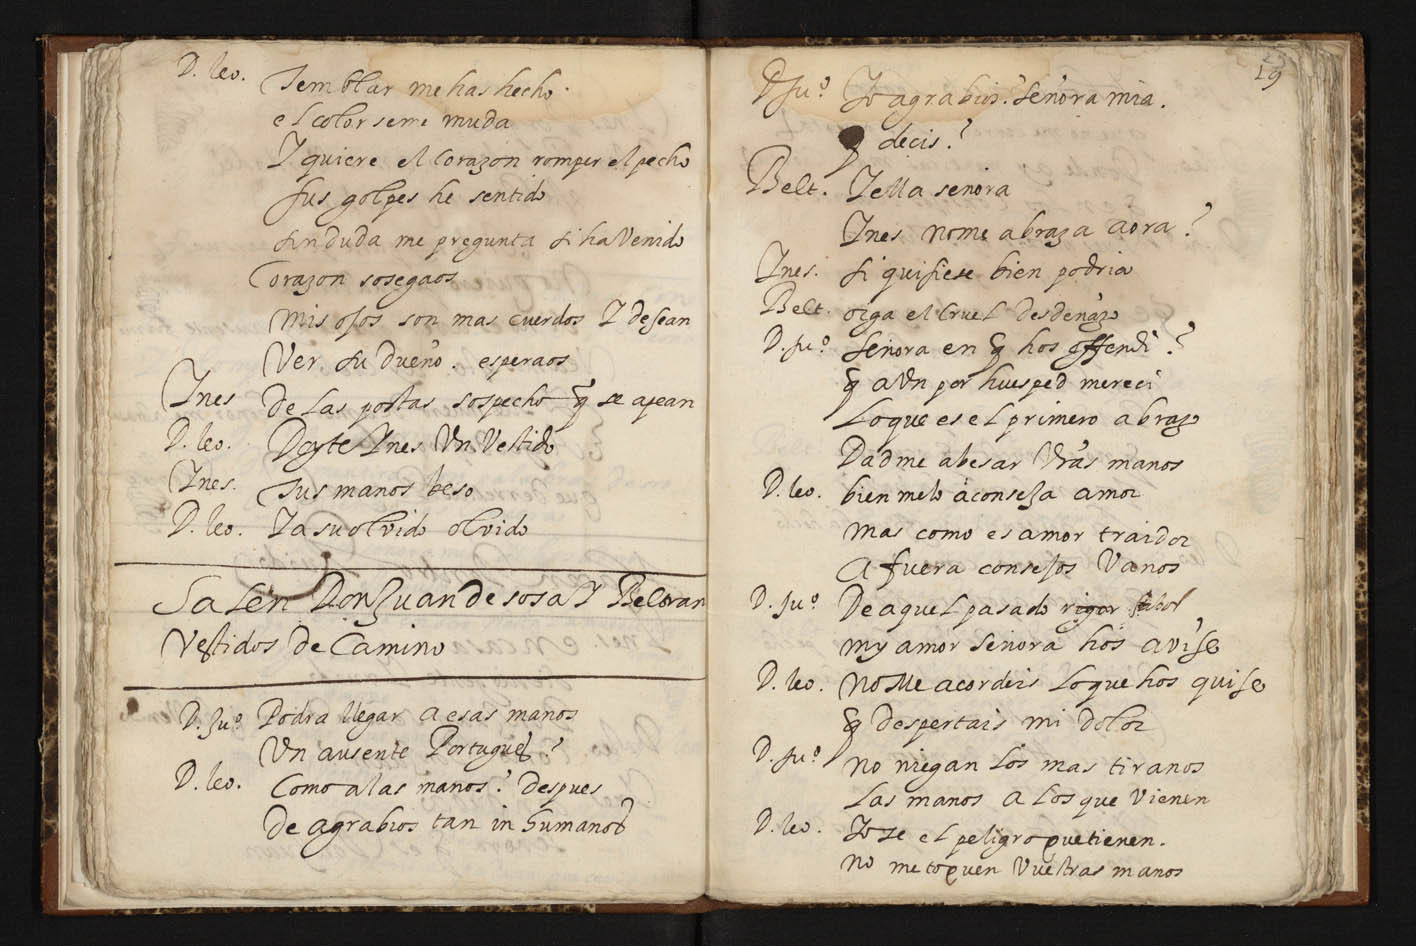 D. leo. Temblar me has hecho.
el color se me muda
Y quiere el Corazon romper el pecho
sus golpes he sentido
sin duda me pregunta si ha Venido
Corazon sosegaos
mis ojos son mas cuerdos Y desean
Ver su dueño. esperaos
Ynes de las postas sospecho q̃ se apean
D. leo. Doyte Ynes Vn Vestido
Ynes. Tus manos beso
D. leo. Ya su olvido olvido
Salen Don Juan de sosa Y Beltran
Vestidos de Camino
D. Juº Podra llegar a esas manos
Vn ausente Portugues?
D. leo. Como a las manos? despues
De agrabios tan inhumanos
19
D Juº Yo agrabios? señora mia.
q̃ decis?
Belt. Y ella señora
Ynes no me abraza aora?
Ynes. si quisiese bien podria
Belt. oiga el Cruel desdenazo
D. Juº señora en q̃ hos offendi?
q̃ aVn por huesped mereci
Lo que es el primero abrazo
Dadme a besar Vr̃as manos
D. leo. bien me lo aconseja amor
mas como es amor traidor
A fuera consejos Vanos
D. Juº De aquel pasado rigor
my amor señora hos avise
D. leo. No Me acordeis Lo que hos quise
q̃ despertais mi dolor
D. Juº no niegan Los mas tiranos
Las manos a Los que Vienen
D. leo. Yo se el peligro que tienen.
No me toquen Vuestras manos